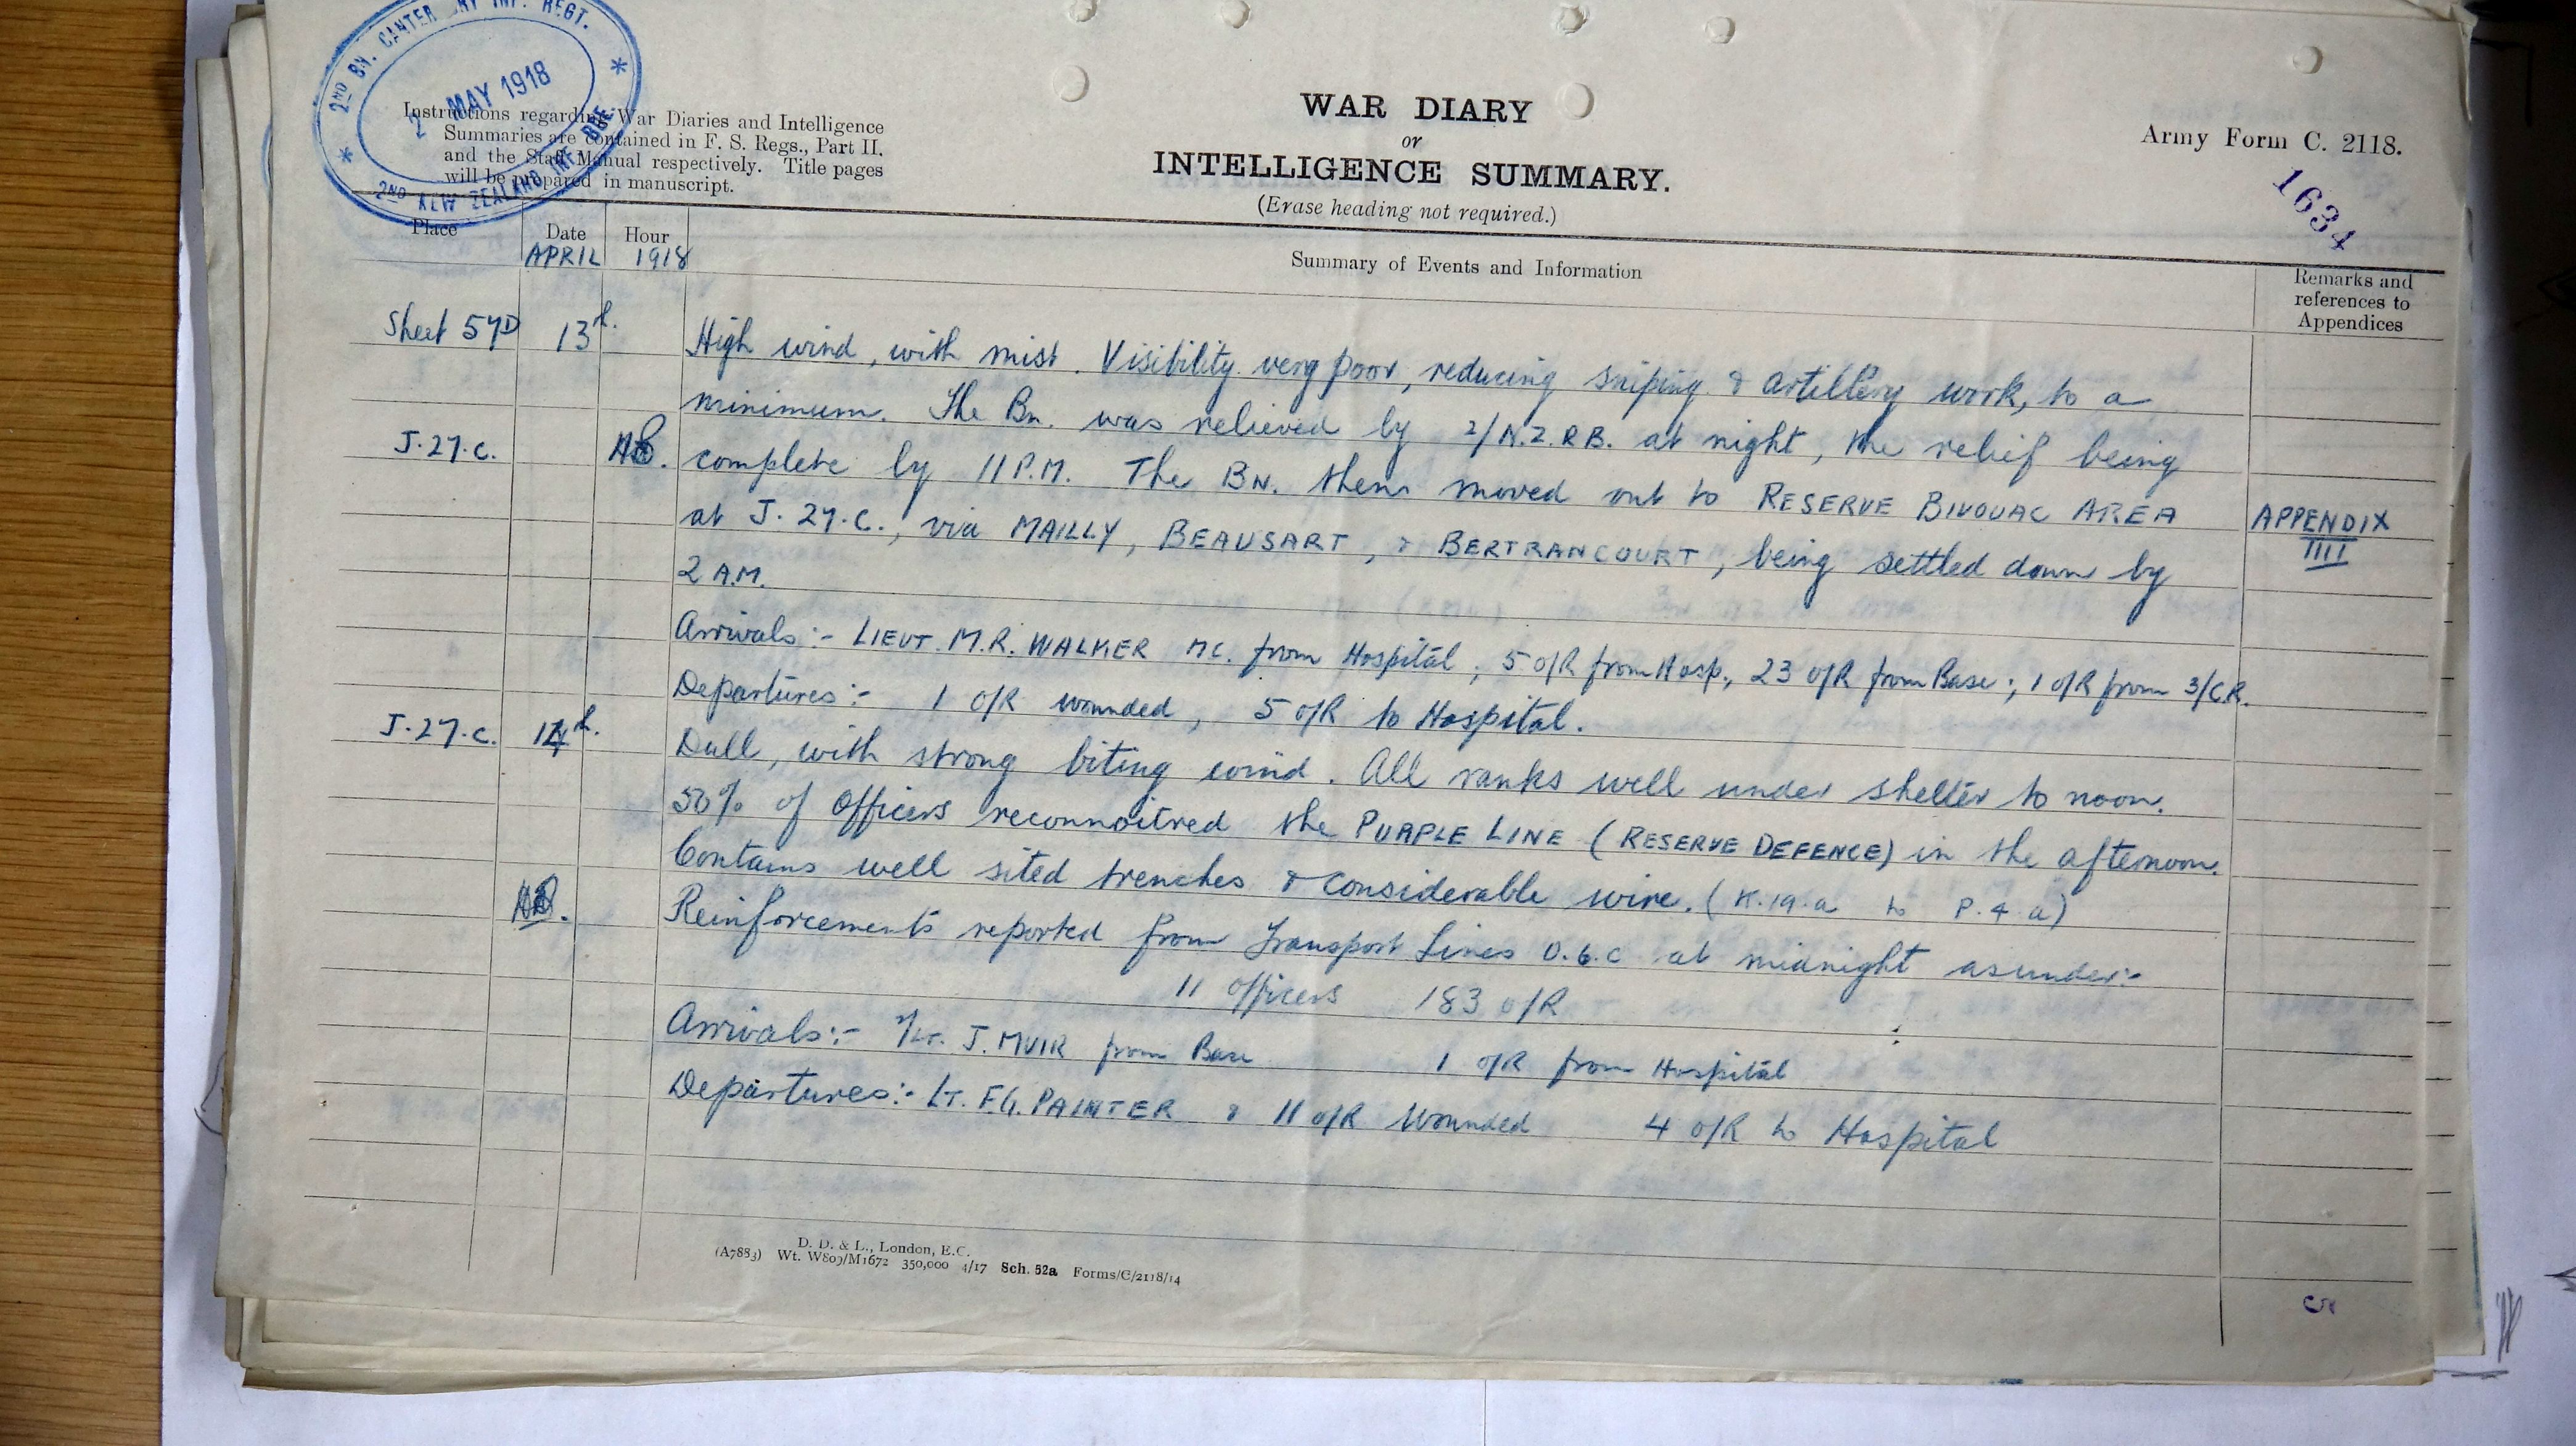 2ND BN. CANTER RY INF. REGT.
2 MAY 1918
2ND NEW ZEALAND INF. BDE.
Instructions regarding War Diaries and Intelligence
Summaries are contained in F. S. Regs., Part II.
and the Staff Manual respectively. Title pages
will be prepared in manuscript.
WAR DIARY
or
INTELLIGENCE SUMMARY.
(Erase heading not required.)
Army Form C. 2118.
1634
Place Date Hour Summary of Events and Information Remarks and references to Appendices
APRIL 1918
Sheet 57D 13th. High wind, with mist. Visibility very poor, reducing sniping & artillery work, to a
minimum. The Bn. was relieved by 2/N.Z.R.B. at night, the relief being
J.27.c. complete by 11 P.M. The BN. then moved out to RESERVE BIVOUAC AREA
at J.27.c., via MAILLY, BEAUSART, & BERTRANCOURT, being settled down by APPENDIX IIII
2 A.M.
Arrivals:- LIEUT. M.R. WALKER MC. from Hospital, 5 O/R from Hosp., 23 O/R from Base; 1 O/R from 3/C.R.
Departures:- 1 O/R wounded, 5 O/R to Hospital.
J.27.c. 14th. Dull, with strong biting wind. All ranks well under shelter to noon.
50% of Officers reconnoitred the PURPLE LINE (RESERVE DEFENCE) in the afternoon.
Contains well sited trenches & considerable wire. (K.19.a to P.4.a)
Reinforcements reported from Transport Lines O.6.c at midnight as under:-
11 officers 183 O/R
Arrivals:- 2/Lt. J. MUIR from Base 1 O/R from Hospital
Departures:- LT. F.G. PAINTER & 11 O/R Wounded 4 O/R to Hospital
D. D. & L., London, E.C.
(A7883) Wt. W809/M1672 350,000 4/17 Sch. 52a Forms/C/2118/14
5